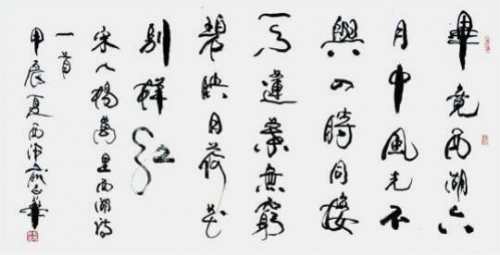 畢竟西湖六
月中風光不
與四時同接
天蓮葉無窮
碧映日荷花
别樣紅
宋人楊萬里西湖詩
一首
甲辰夏